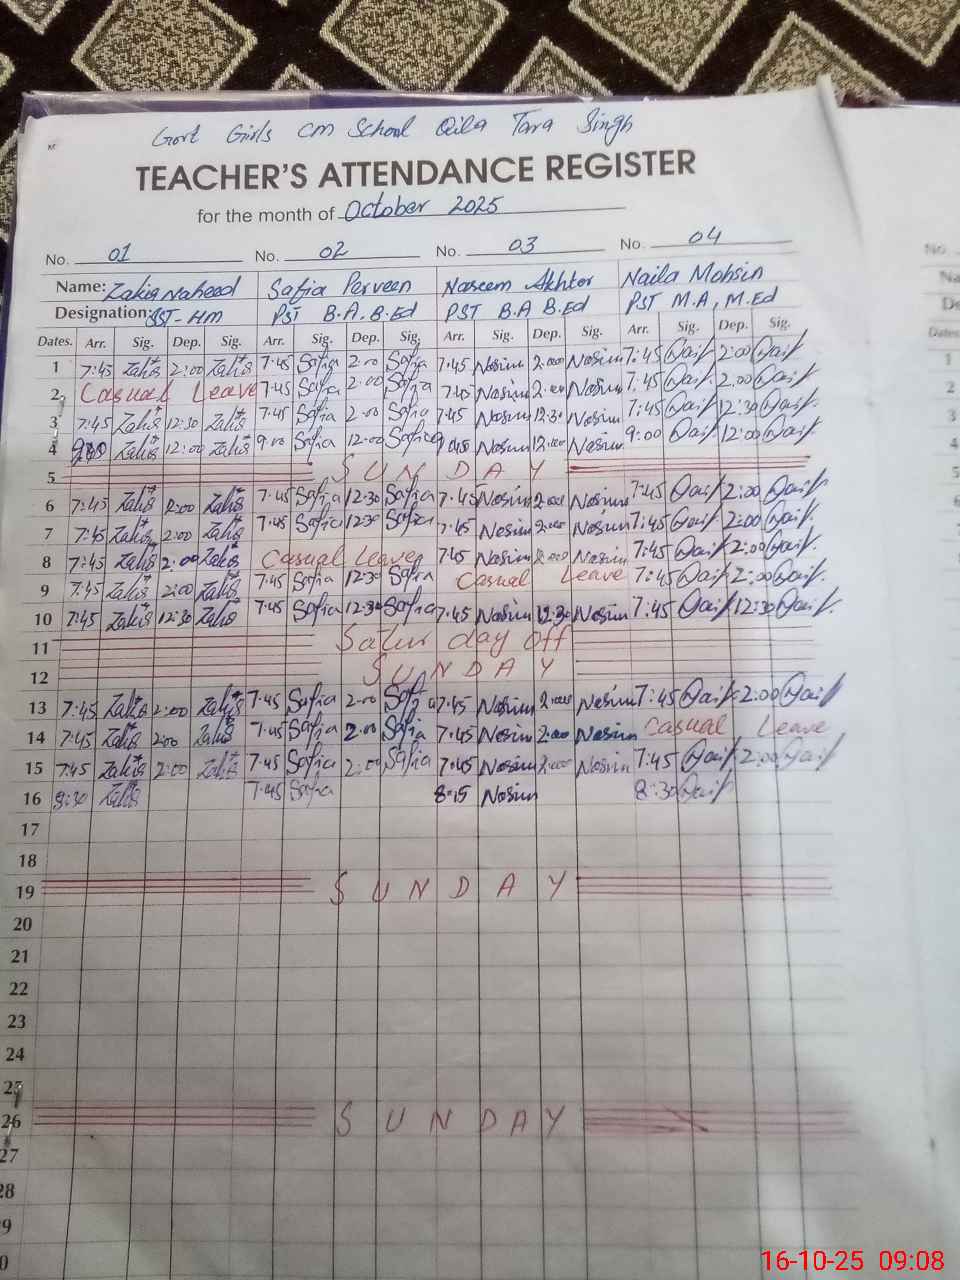 Govt Girls CM School Qila Tara Singh
TEACHER'S ATTENDANCE REGISTER
for the month of October 2025
No. 01 No. 02 No. 03 No. 04
Name: Zakia Naheed Safia Perveen Naseem Akhtor Naila Mohsin
Designation: SST-HM PST B.A. B.Ed PST B.A B.Ed PST M.A, M.Ed
Dates. Arr. Sig. Dep. Sig. Arr. Sig. Dep. Sig. Arr. Sig. Dep. Sig. Arr. Sig. Dep. Sig.
1 7:45 Zakia 2:00 Zakia 7:45 Safia 2:00 Safia 7:45 Nasim 2:00 Nasim 7:45 2:00
2 Casual Leave 7:45 Safia 2:00 Safia 7:45 Nasim 2:00 Nasim 7:45 2:00
3 7:45 Zakia 12:30 Zakia 7:45 Safia 2:00 Safia 7:45 Nasim 12:30 Nasim 7:45 12:30
4 Zakia 12:00 Zakia 9:00 Safia 12:00 Safia Nasim 12:00 Nasim 9:00 12:00
5 SUNDAY
6 7:45 Zakia 2:00 Zakia 7:45 Safia 12:30 Safia 7:45 Nasim 2:00 Nasim 7:45 2:00
7 7:45 Zakia 2:00 Zakia 7:45 Safia 12:30 Safia 7:45 Nasim 2:00 Nasim 7:45 2:00
8 7:45 Zakia 2:00 Zakia Casual Leave 7:45 Nasim 2:00 Nasim 7:45 2:00
9 7:45 Zakia 2:00 Zakia 7:45 Safia 12:30 Safia Casual Leave 7:45 2:00
10 7:45 Zakia 12:30 Zakia 7:45 Safia 12:30 Safia 7:45 Nasim 12:30 Nasim 7:45 12:30
11 Satur day off
12 SUNDAY
13 7:45 Zakia 2:00 Zakia 7:45 Safia 2:00 Safia 7:45 Nasim 2:00 Nasim 7:45 2:00
14 7:45 Zakia 2:00 Zakia 7:45 Safia 2:00 Safia 7:45 Nasim 2:00 Nasim Casual Leave
15 7:45 Zakia 2:00 Zakia 7:45 Safia 2:00 Safia 7:45 Nasim 2:00 Nasim 7:45 2:00
16 8:30 Zakia 7:45 Safia 8:15 Nasim 8:30
17
18
19 SUNDAY
20
21
22
23
24
25
26 SUNDAY
27
28
16-10-25 09:08